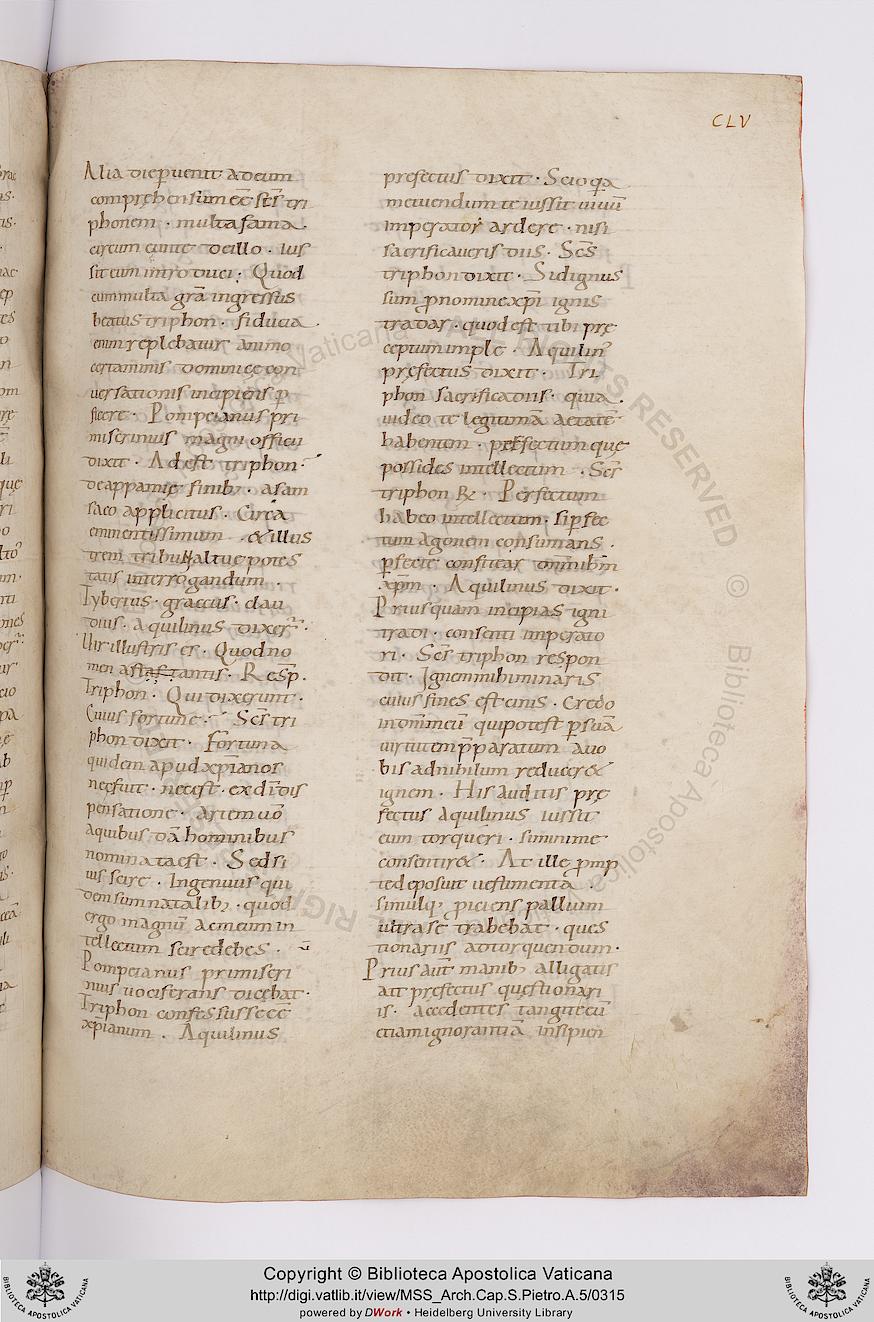 CLV
Alia die puenit ad eum
comprehensum eē scs̄ tri
phonem · multa fama ·
circum eunte de illo · ius
sit eum introduci · Quod
cum multa grā ingressus
beatus triphon · fiducia ·
enim replebatur animo
certaminis dominice con
uersationis incipiens p
ficere · Pompeianus pri
miscrinius magni officii
dixit · Adest triphon ·
de appamię finib; · a sam
saco applicitus · Circa
eminentissimum · & illus
trem tribunal tue potes
tatis interrogandum ·
Tyberius · graccus · clau
dius · aquilinus dixer̄ ·
Uir illustris es · Quod no
men astas tantis · Resp̄ ·
Triphon · Qui dixerunt ·
Cuius fortune · Scs̄ tri
phon dixit · Fortuna
quidem apud xp̄ianos
nec fuit · nec est · ex di dis
pensatione · artem uō
a quibusdā hominibus
nominata est · Sed si
uis scire · Ingenuus qui
dem sum natalib; · quod
ergo magnū ac meum in
tellectum scire debes ·
Pompeianus primiscri
nius uociferans dicebat ·
Triphon confessus se eē
xp̄ianum · Aquilinus
prefectus dixit · Scio qa
metuendum te iussit uiuū
imperator ardere · nisi
sacrificaueris diis · Scs̄
triphon dixit · Si dignus
sum p nomine xp̄i ignis
tradar · quod est tibi pre
ceptum imple · Aquilin'
prefectus dixit · Tri
phon sacrifica diis · quia ·
uideo te legitimā aetatē
habentem · perfectumque
possides intellectum · Scs̄
triphon R; · Perfectum
habeo intellectum · si pfec
tum agonem consumans ·
pfecte confitear omnibm̄
xp̄m · Aquilinus dixit ·
Priusquam incipias igni
tradi · consenti imperato
ri · Scs̄ triphon respon
dit · Ignem mihi minaris
cuius fines est cinis · Credo
in dom̄ meū qui potest p suā
uirtutem pparatum a uo
bis ad nihilum reducere &
ignem · His auditis pre
fectus aquilinus iussit
eum torqueri · si minime
consentir& · At ille pmp
te deposuit uestimenta ·
simulq; piciens pallium
ultra se trahebat · ques
tionariis ad torquendum ·
Prius aut̄ manib; alligatis
ait prefectus questionari
is · accedentes tangite eū
etiam ignorantiā insipien
Copyright © Biblioteca Apostolica Vaticana
http://digi.vatlib.it/view/MSS_Arch.Cap.S.Pietro.A.5/0315
powered by DWork • Heidelberg University Library